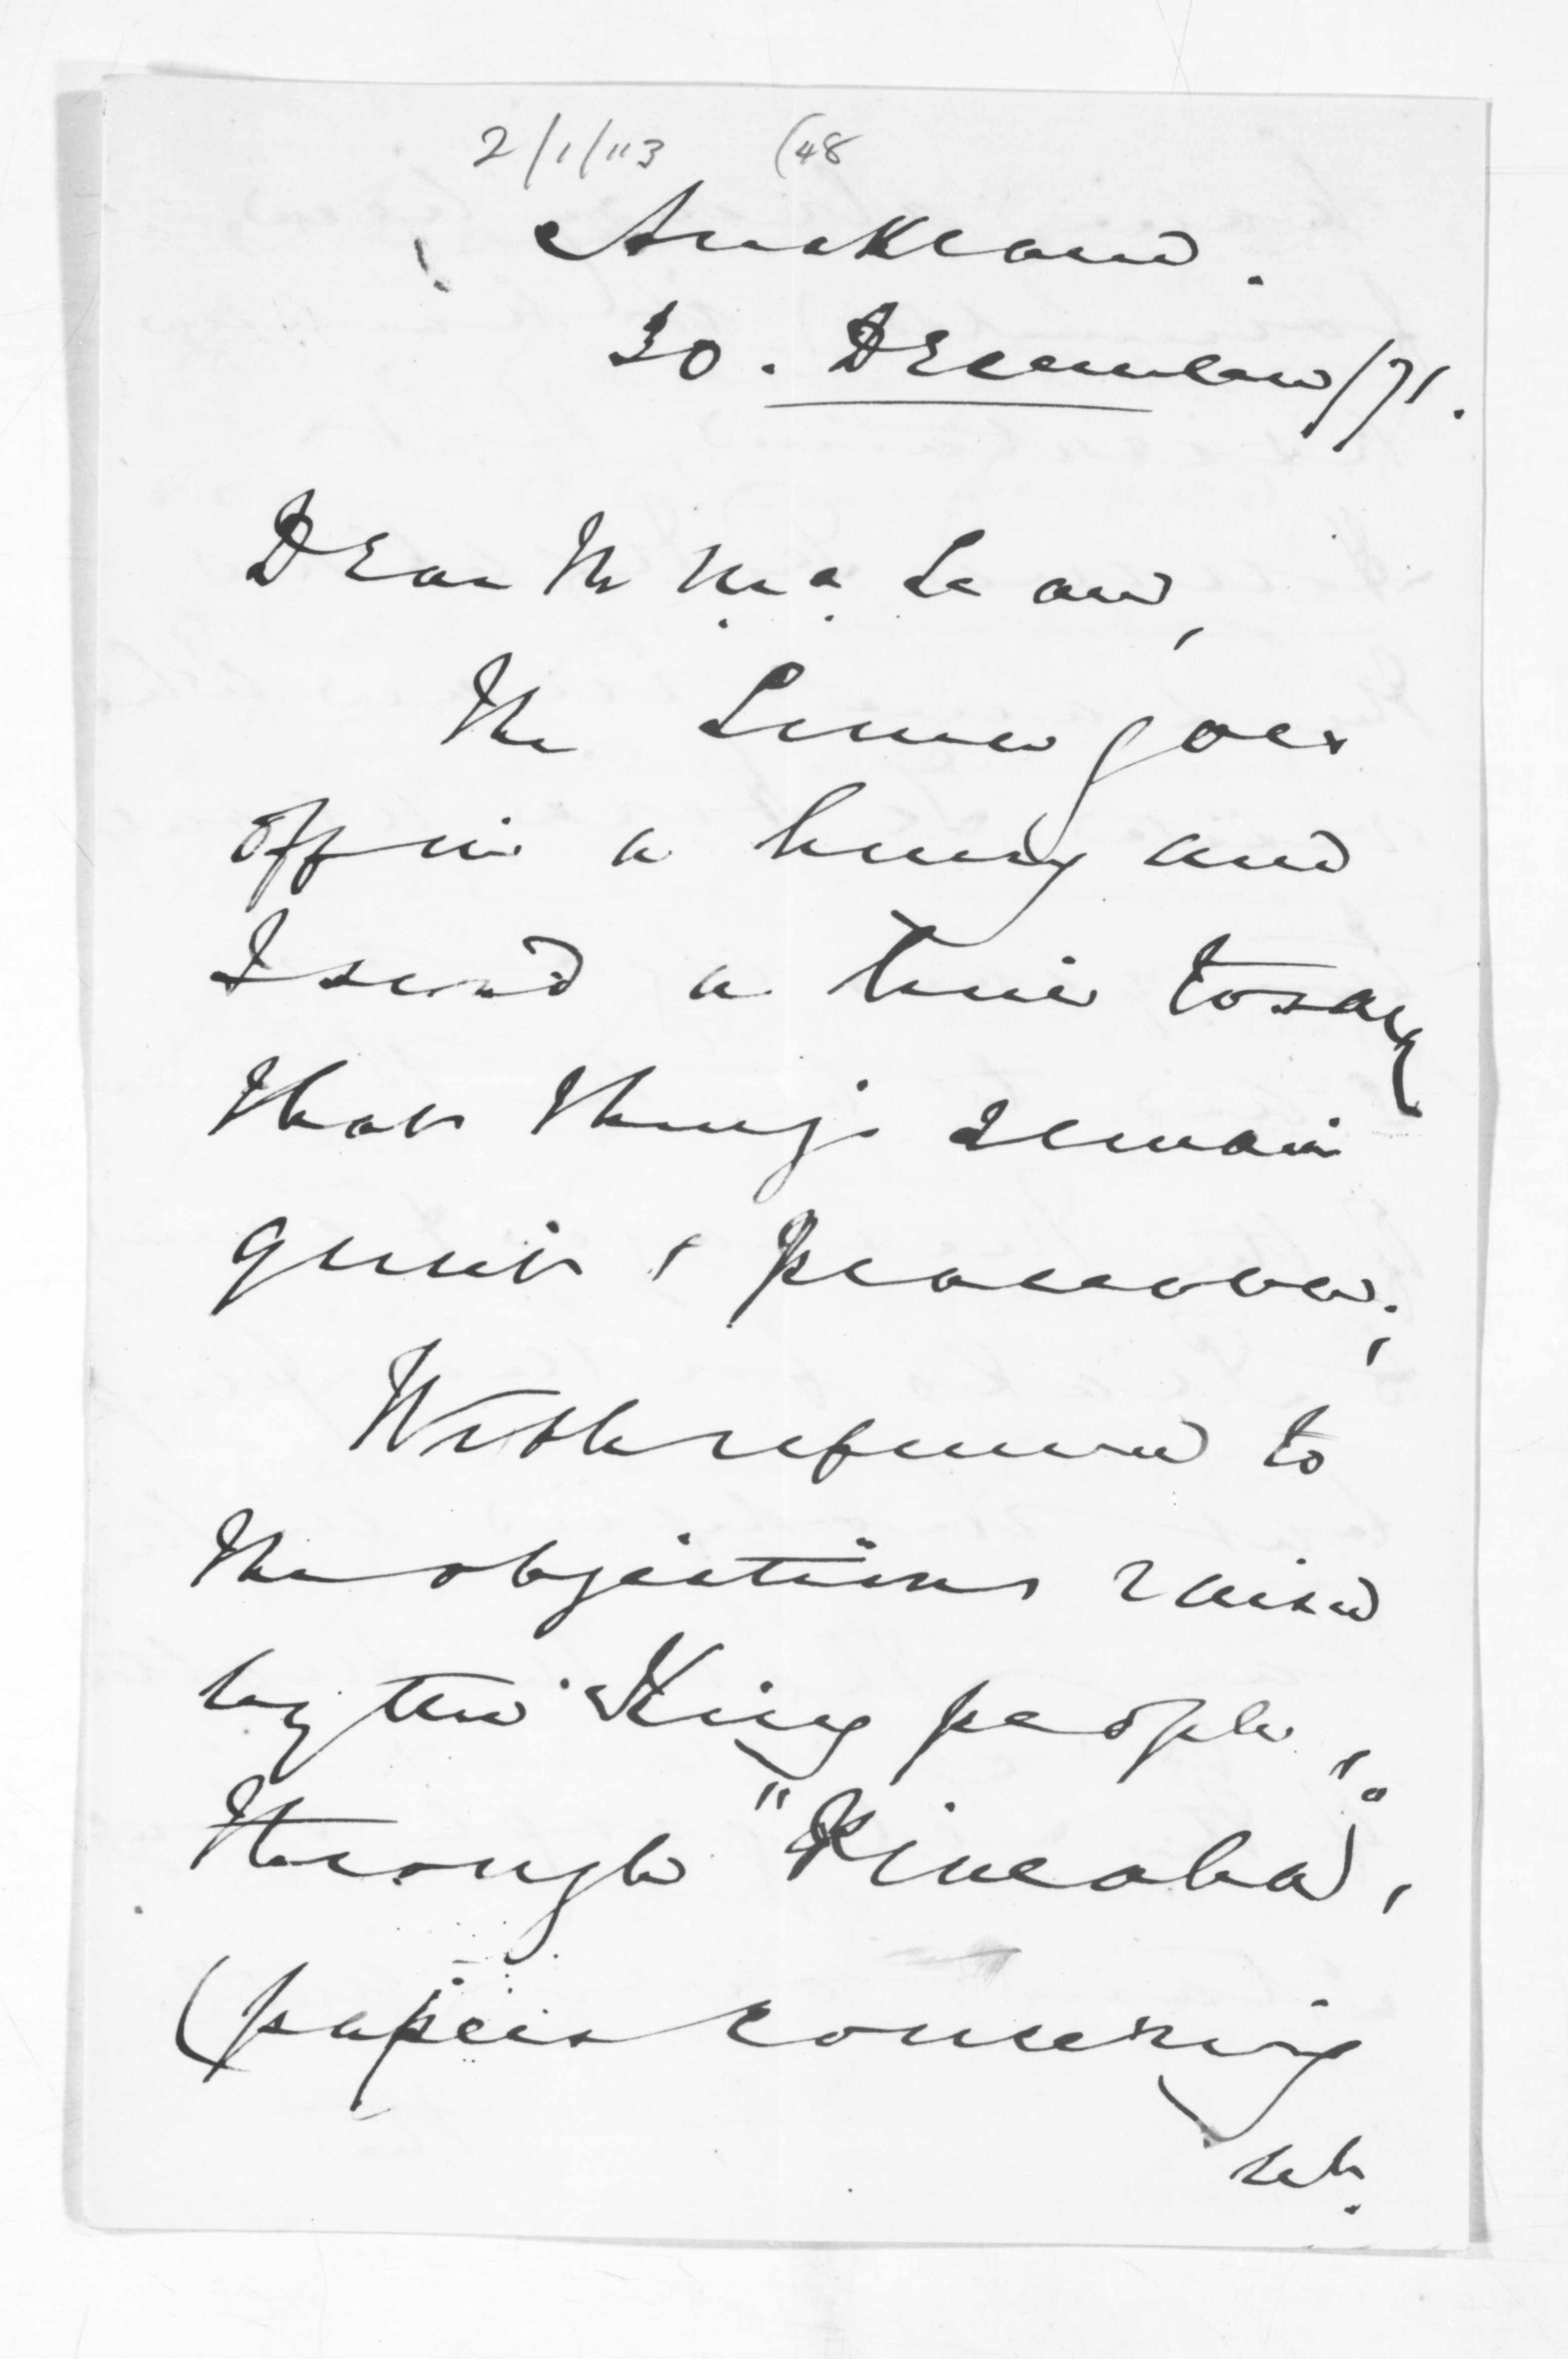 2/1/113 (48
Auckland.
30. December/71.
Dear Mr McLean,
The Luna goes
off in a hurry and
I send a line to say
that things remain
quiet & peaceable;
With reference to
the objections raised
by the King people,
through "
(papers concerning